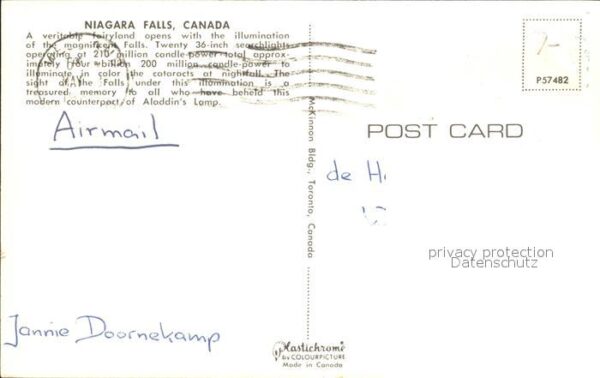 NIAGARA FALLS, CANADA
A veritable fairyland opens with the illumination
of the magnificent Falls. Twenty 36-inch searchlights
operating at 210 million candle-power total approx-
imately four billion 200 million candle-power to
illuminate in color the cataracts at nightfall. The
sight of the Falls under this illumination is a
treasured memory to all who have beheld this
modern counterpart of Aladdin's Lamp.
Airmail
Jannie Doornekamp
McKinnon Bldg., Toronto, Canada
Plastichrome
by COLOURPICTURE
Made in Canada
P57482
POST CARD
de H
privacy protection
Datenschutz